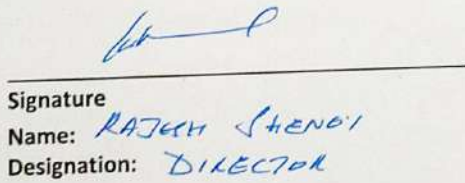 Signature
Name: RAJESH SHENOY
Designation: DIRECTOR